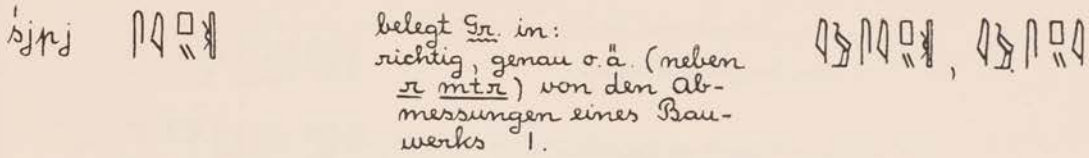 śjpj belegt Gr. in:
richtig, genau o.ä. (neben
r mtr) von den Ab-
messungen eines Bau-
werks 1.